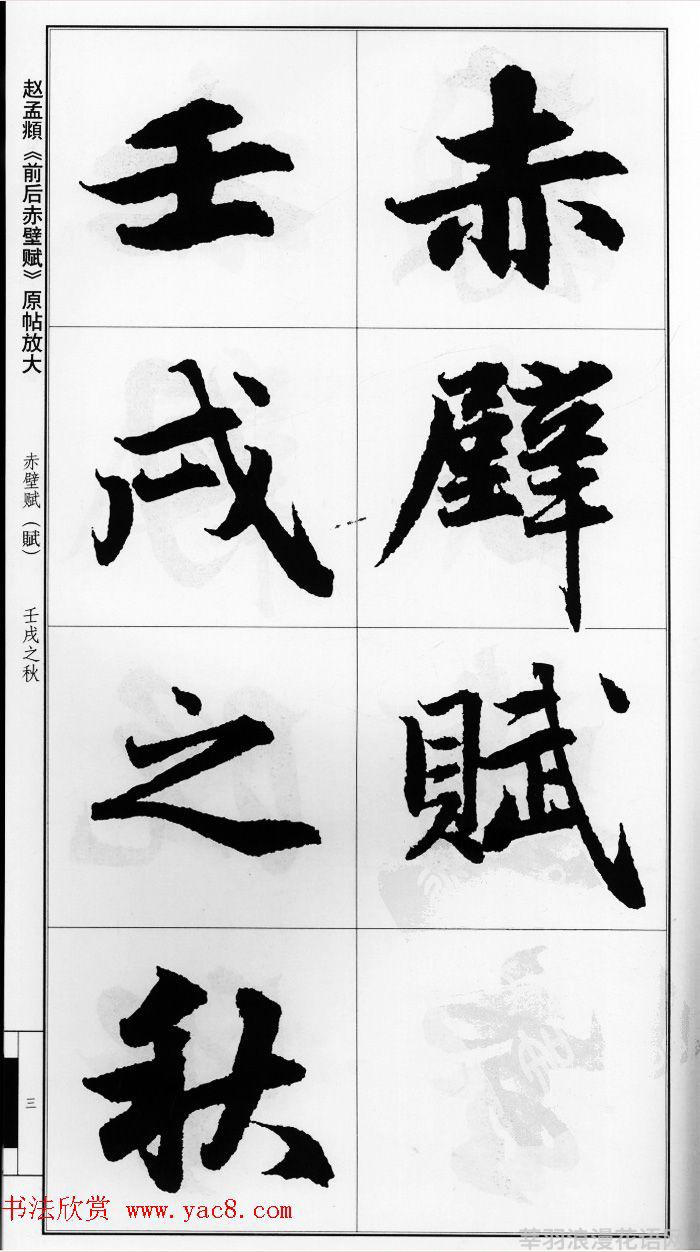 赤壁賦
壬戌之秋
赵孟頫《前后赤壁赋》原帖放大
赤壁赋（賦）
壬戌之秋
三
书法欣赏 www.yac8.com
華羽浪漫花语网